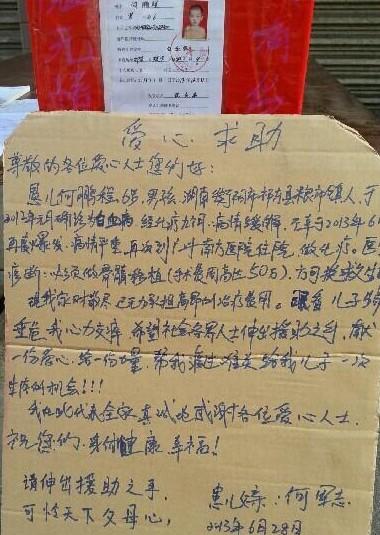 爱心求助
尊敬的各位爱心人士您们好：
患儿何鹏程,6岁,男孩,湖南衡阳市祁东县粮市镇人,于
2012年元月确诊为白血病,经化疗力,病情缓解,于2013年6
再度爆发,病情严重,再次到广州南方医院住院,做化疗。医
疗断：必须做骨髓移植(手术费用高达50万),方可挽救生
现我家财散尽已无力承担高昂的治疗费用。眼看儿子
垂危我心力交瘁,希望社会各界人士伸出援助之手,献
一份爱心,给一份力量,帮我渡过难关给我儿子一次
生存的机会!!!
我在此代表全家真诚地感谢各位爱心人士,
祝您们：身体健康幸福!
请伸出援助之手
可怜天下父母心,
患儿父亲：何军志
2013年6月28日